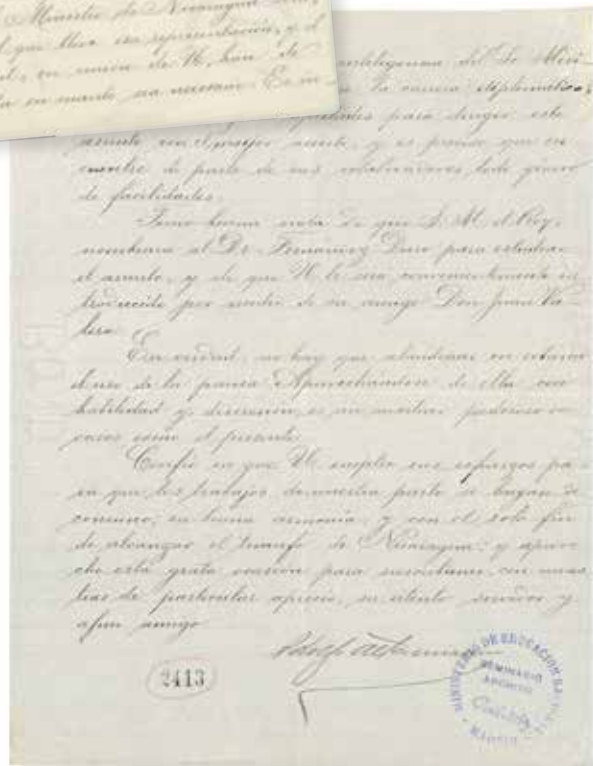 Ministro de Nicaragua
el que lleva esa representación, y el
en unión de U., han de
en cuanto sea necesario. Es in
inteligencia del Sr. Mini-
en la carrera diplomática,
para dirigir este
asunto con el mejor acierto, y es preciso que en
cuentre de parte de sus colaboradores todo género
de facilidades.
Tomo buena nota de que S. M. el Rey,
nombrara al Dr. Fernández Duro para estudiar
el asunto, y de que U. le sea convenientemente in
troducido por medio de su amigo Don Juan Va
lera.
En verdad, no hay que abandonar en absoluto
el uso de la prensa. Aprovechándose de ella con
habilidad y discreción, es un auxiliar poderoso en
casos como el presente.
Confío en que U. emplee sus esfuerzos pa
ra que los trabajos de nuestra parte se hagan de
consuno, en buena armonía y con el solo fin
de alcanzar el triunfo de Nicaragua; y aprove
cho esta grata ocasión para suscribirme, con mues
tras de particular aprecio, su atento servidor y
afmo amigo
2413
MINISTERIO DE EDUCACIÓN
SEMINARIO
ARCHIVO
MADRID